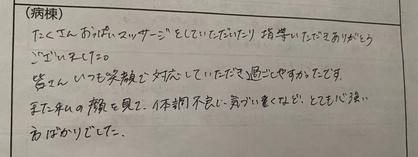 (病棟)
たくさんおっぱいマッサージをしていただいたり 指導いただきありがとう
ございました。
皆さん いつも笑顔で対応していただき過ごしやすかったです。
また私の顔を見て、体調不良に気づいてくださるなど、とても心強い
方ばかりでした。